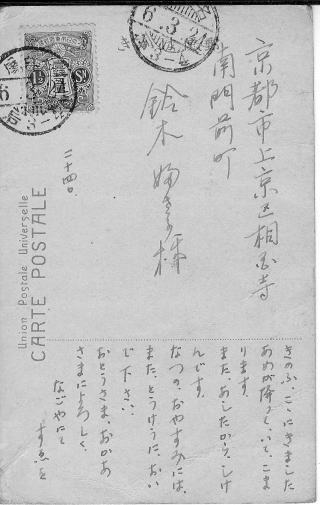 京都市上京区相国寺
南門前町
鈴木
様
二十四日
Union Postale Universelle
CARTE POSTALE
6.3.24
1½
Sn
きのふ、こゝにきました
あめが降つてゐて、こま
ります。
また、あしたから、しけ
んです。
なつの、おやすみには、
また、とうけうに、おい
で下さい。
おとうさま、おかあ
さまによろしく、
なごやにて
すゑを